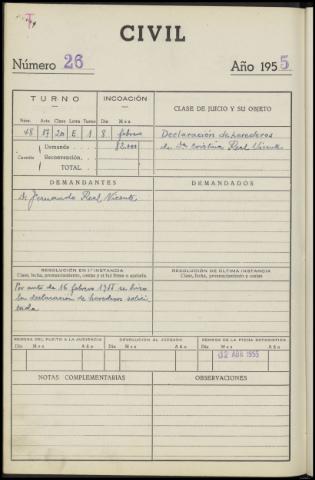 CIVIL
Número 26 Año 1955
TURNO INCOACIÓN CLASE DE JUICIO Y SU OBJETO
Núm. Art. Clase Letra Turno Día Mes
48 17 20 E 1 8 febrero Declaración de herederos
Demanda 82.000 de Dª Cristina Real Vicente
Cuantía Reconvención
TOTAL
DEMANDANTES DEMANDADOS
D. Fernando Real Vicente
RESOLUCIÓN EN 1ª INSTANCIA RESOLUCIÓN DE ÚLTIMA INSTANCIA
Clase, fecha, pronunciamiento, costas y si fué firme o apelada Clase, fecha, pronunciamiento y costas
Por auto de 16 febrero 1955 se hizo
la declaración de herederos solici
tada
REMESA DEL PLEITO A LA AUDIENCIA DEVOLUCIÓN AL JUZGADO REMESA DE LA FICHA ESTADÍSTICA
Día Mes Año Día Mes Año Día Mes Año
02 ABR 1955
NOTAS COMPLEMENTARIAS OBSERVACIONES